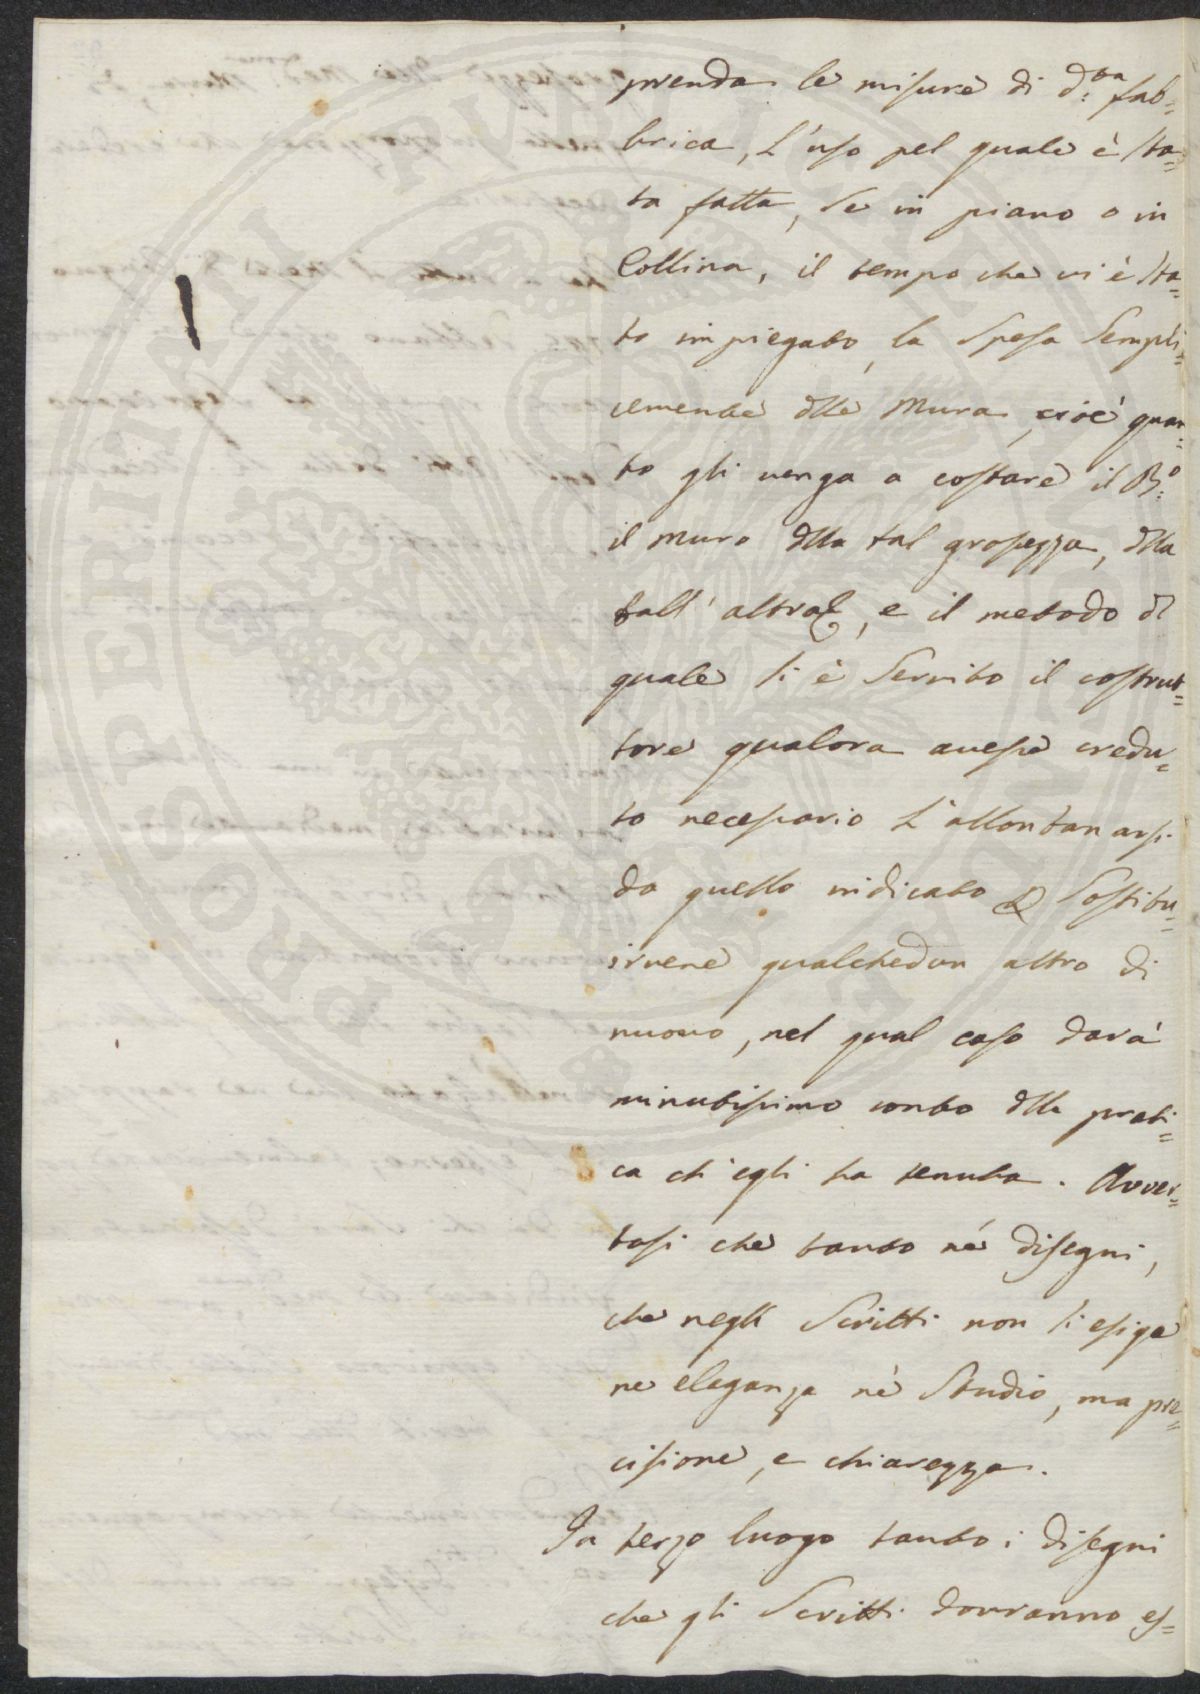 prenda le misure di d.ta fab=
brica, L'uso pel quale è sta=
ta fatta, se in piano o in
Collina, il tempo che vi è sta=
to impiegato, la Spesa Sempli=
cemente dlle Mura, cioè quan=
to gli venga a costare il B.o
il muro dlla tal grossezza, dlla
tall'altra &, e il metodo dl
quale si è Servito il costrut=
tore qualora avesse credu=
to necessario L'allontanarsi
da quello indicato & Sostitu=
irvene qualchedun altro di
nuovo, nel qual caso darà
minutissimo conto dlla prati=
ca ch'egli ha tenuta. Avver=
tasi che tanto né disegni,
che negli Scritti non si esige
ne eleganza nè Studio, ma pre=
cisione, e chiarezza.
In terzo luogo tanto i disegni
che gli Scritti dovranno es=
PROSPERITATI PUBLICAE AUGENDAE